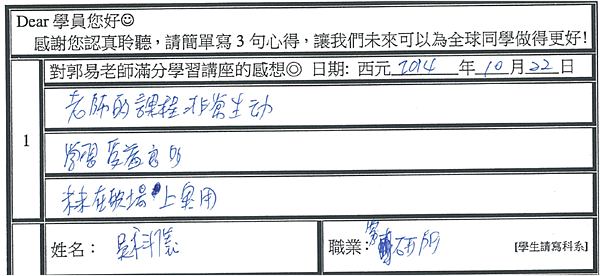 Dear 學員您好☺
感謝您認真聆聽，請簡單寫3句心得，讓我們未來可以為全球同學做得更好!
對郭易老師滿分學習講座的感想◎ 日期: 西元 2014 年 10 月 22 日
1
老師的課程非常生動
學習受益良多
未來在職場上實用
姓名：吳科
職業：研所 [學生請寫科系]